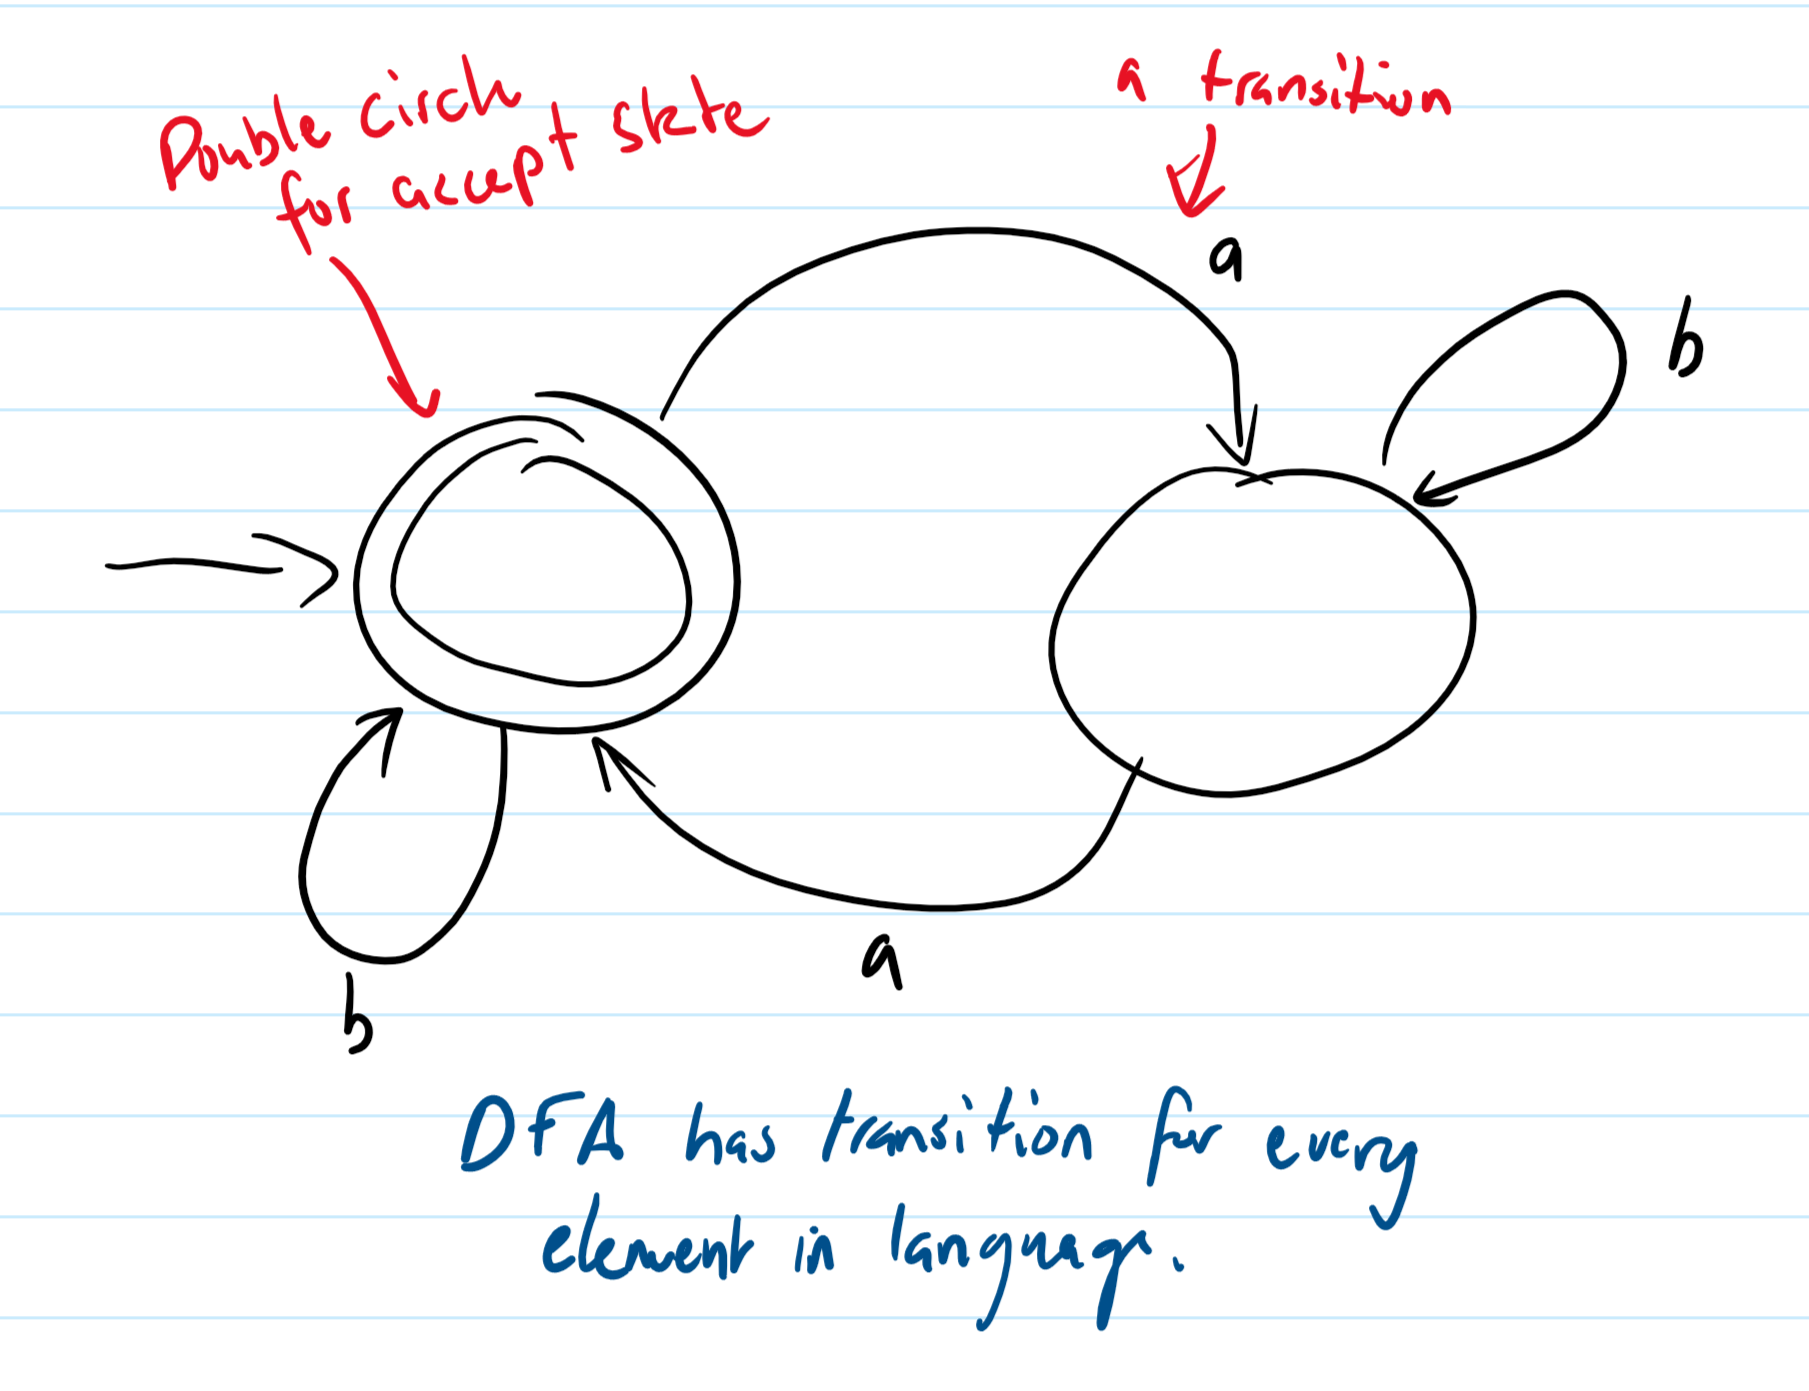 Double circle
for accept state
a transition
a
b
a
b
DFA has transition for every
element in language.